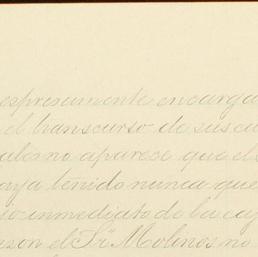 espresamente encarga
el transcurso de sus cu
aparece que el
haya tenido nunca que
so inmediato de la ca
el Sr. Molinos no